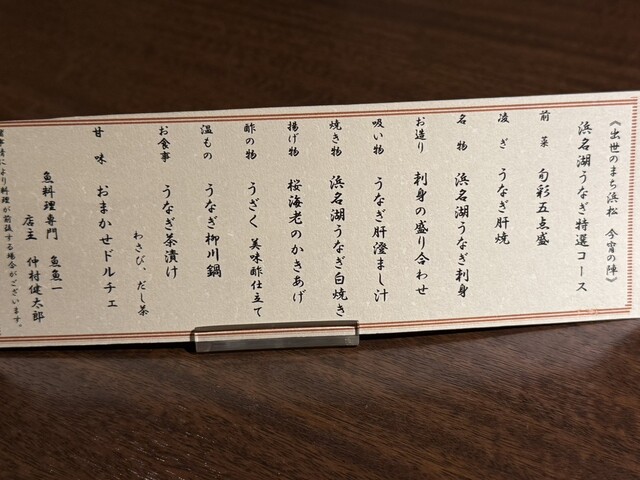 《出世のまち浜松 今宵の陣》
浜名湖うなぎ特選コース
前菜 旬彩五点盛
凌ぎ うなぎ肝焼
名物 浜名湖うなぎ刺身
お造り 刺身の盛り合わせ
吸い物 うなぎ肝澄まし汁
焼き物 浜名湖うなぎ白焼き
揚げ物 桜海老のかきあげ
酢の物 うざく 美味酢仕立て
温もの うなぎ柳川鍋
お食事 うなぎ茶漬け
わさび、だし茶
甘味 おまかせドルチェ
魚料理専門 魚魚一
店主 仲村健太郎
により料理が前後する場合がございます。